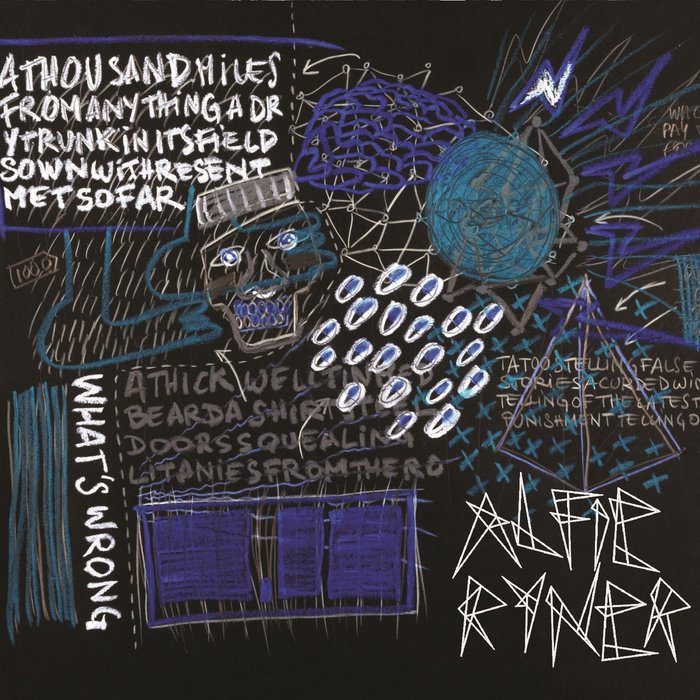 ATHOUSANDMILES
FROMANYTHINGADR
YTRUNKINITSFIELD
SOWNWITHRESENT
METSOFAR
PAY
WHAT'S WRONG
ATHICKWELLTIN
BEARDASHIP
DOORSSQUEALING
LITANIESFROMTHERO
TATOOSTELLINGFALSE
STORIESACURDEDWI
TELLINGOFTHELATEST
PUNISHMENTTELLINGO
ALFIE
RYNER